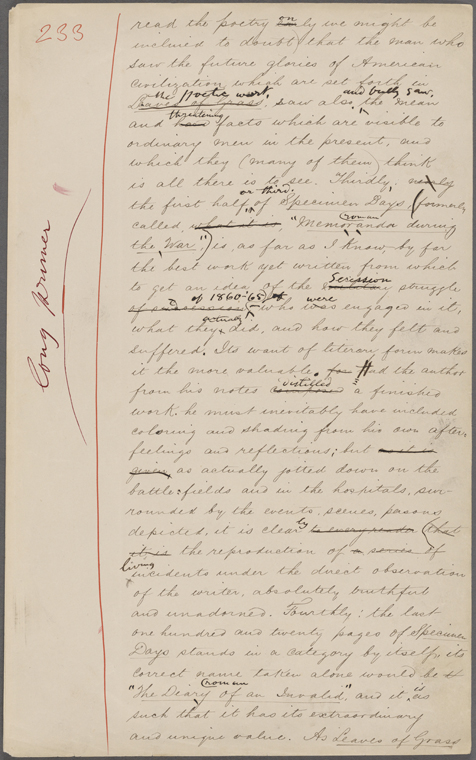 233
Long Primer
read the poetry on only we might be
inclined to doubt that the man who
saw the future glories of American
civilization which are set forth in
the Poetic work, and bully saw,
Leaves of Grass, saw also the mean
threatening
and facts which are visible to
ordinary men in the present, and
which they (many of them) think
is all there is to see. Thirdly,
or third
the first half of Specimen Days, (formerly
roman
called, what it is, "Memoranda during
the War,") is, as far as I know by far
the best work yet written from which
Secession
to get an idea of the struggle
of 1860-'65 of were
of secession who was engaged in it,
actually
what they did, and how they felt and
suffered. Its want of literary form makes
it the more valuable. for Had the author
distilled
from his notes composed a finished
work, he must inevitably have included
coloring and shading from his own after-
feelings and reflections; but as it is
given, as actually jotted down on the
battle-fields and in the hospitals, sur-
rounded by the events, scenes, persons
ly
depicted, it is clear to every reader (that
it is the reproduction of a series of
living
incidents under the direct observation
of the writer, absolutely truthful
and unadorned. Fourthly: the last
one hundred and twenty pages of Specimen
Days stands in a category by itself, its
correct name taken alone would be
roman
"The Diary of an Invalid," and it is
such that it has its extraordinary
and unique value. As Leaves of Grass